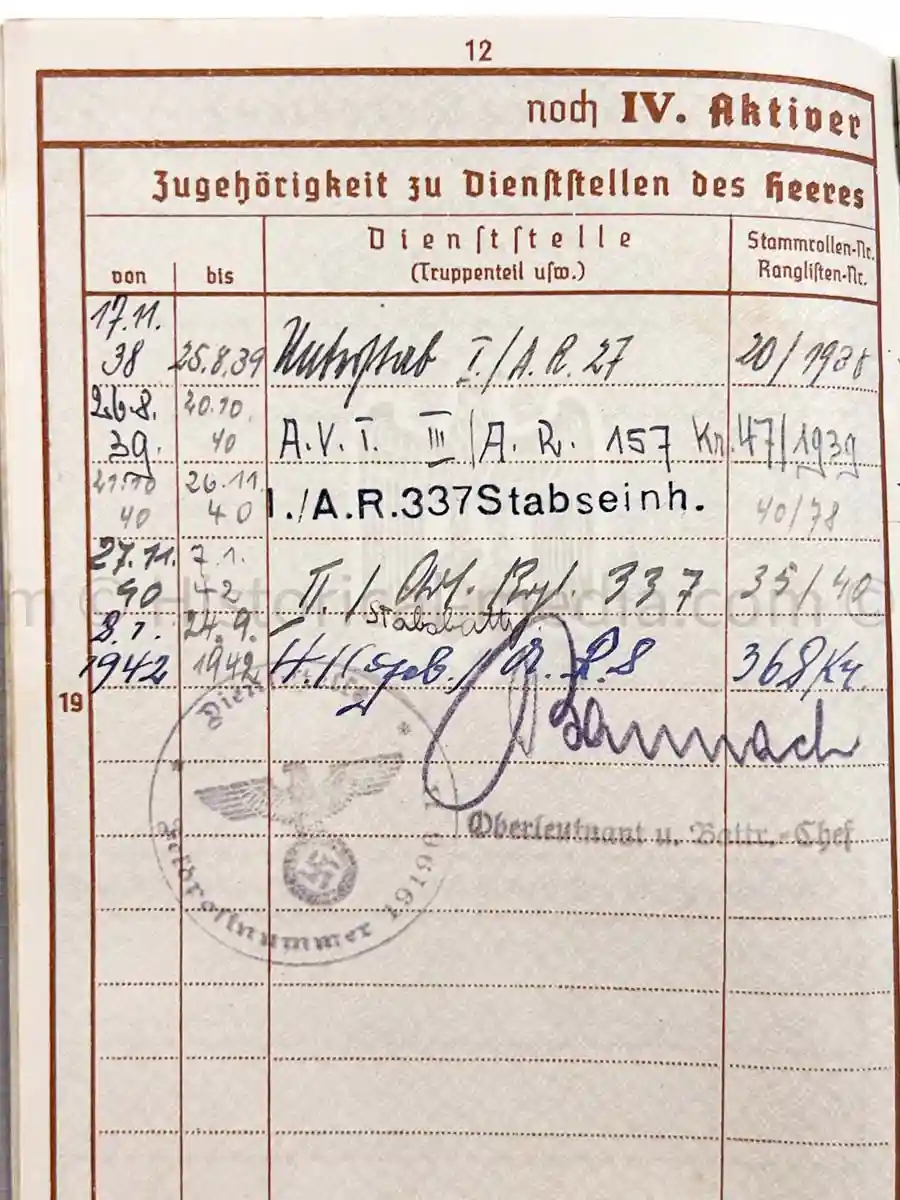 12
noch IV. Aktiver
Zugehörigkeit zu Dienststellen des Heeres
von bis
Dienststelle
(Truppenteil usw.)
Stammrollen-Nr.
Ranglisten-Nr.
17.11.
38 25.8.39 I./A.R. 27
26.8. 20.10.
39. 40 A.V.T. III/A.R. 157 Kr. 47/1939
21.10 26.11.
40 40 I./A.R.337Stabseinh. 40/78
27.11. 7.1.
40 42 II./Art. Rgt. 337 35/40
Stabsbattr.
8.1. 24.9.
1942 1942 368/Kr.
19
Dienststelle
Feldpostnummer
Oberleutnant u. Battr.-Chef